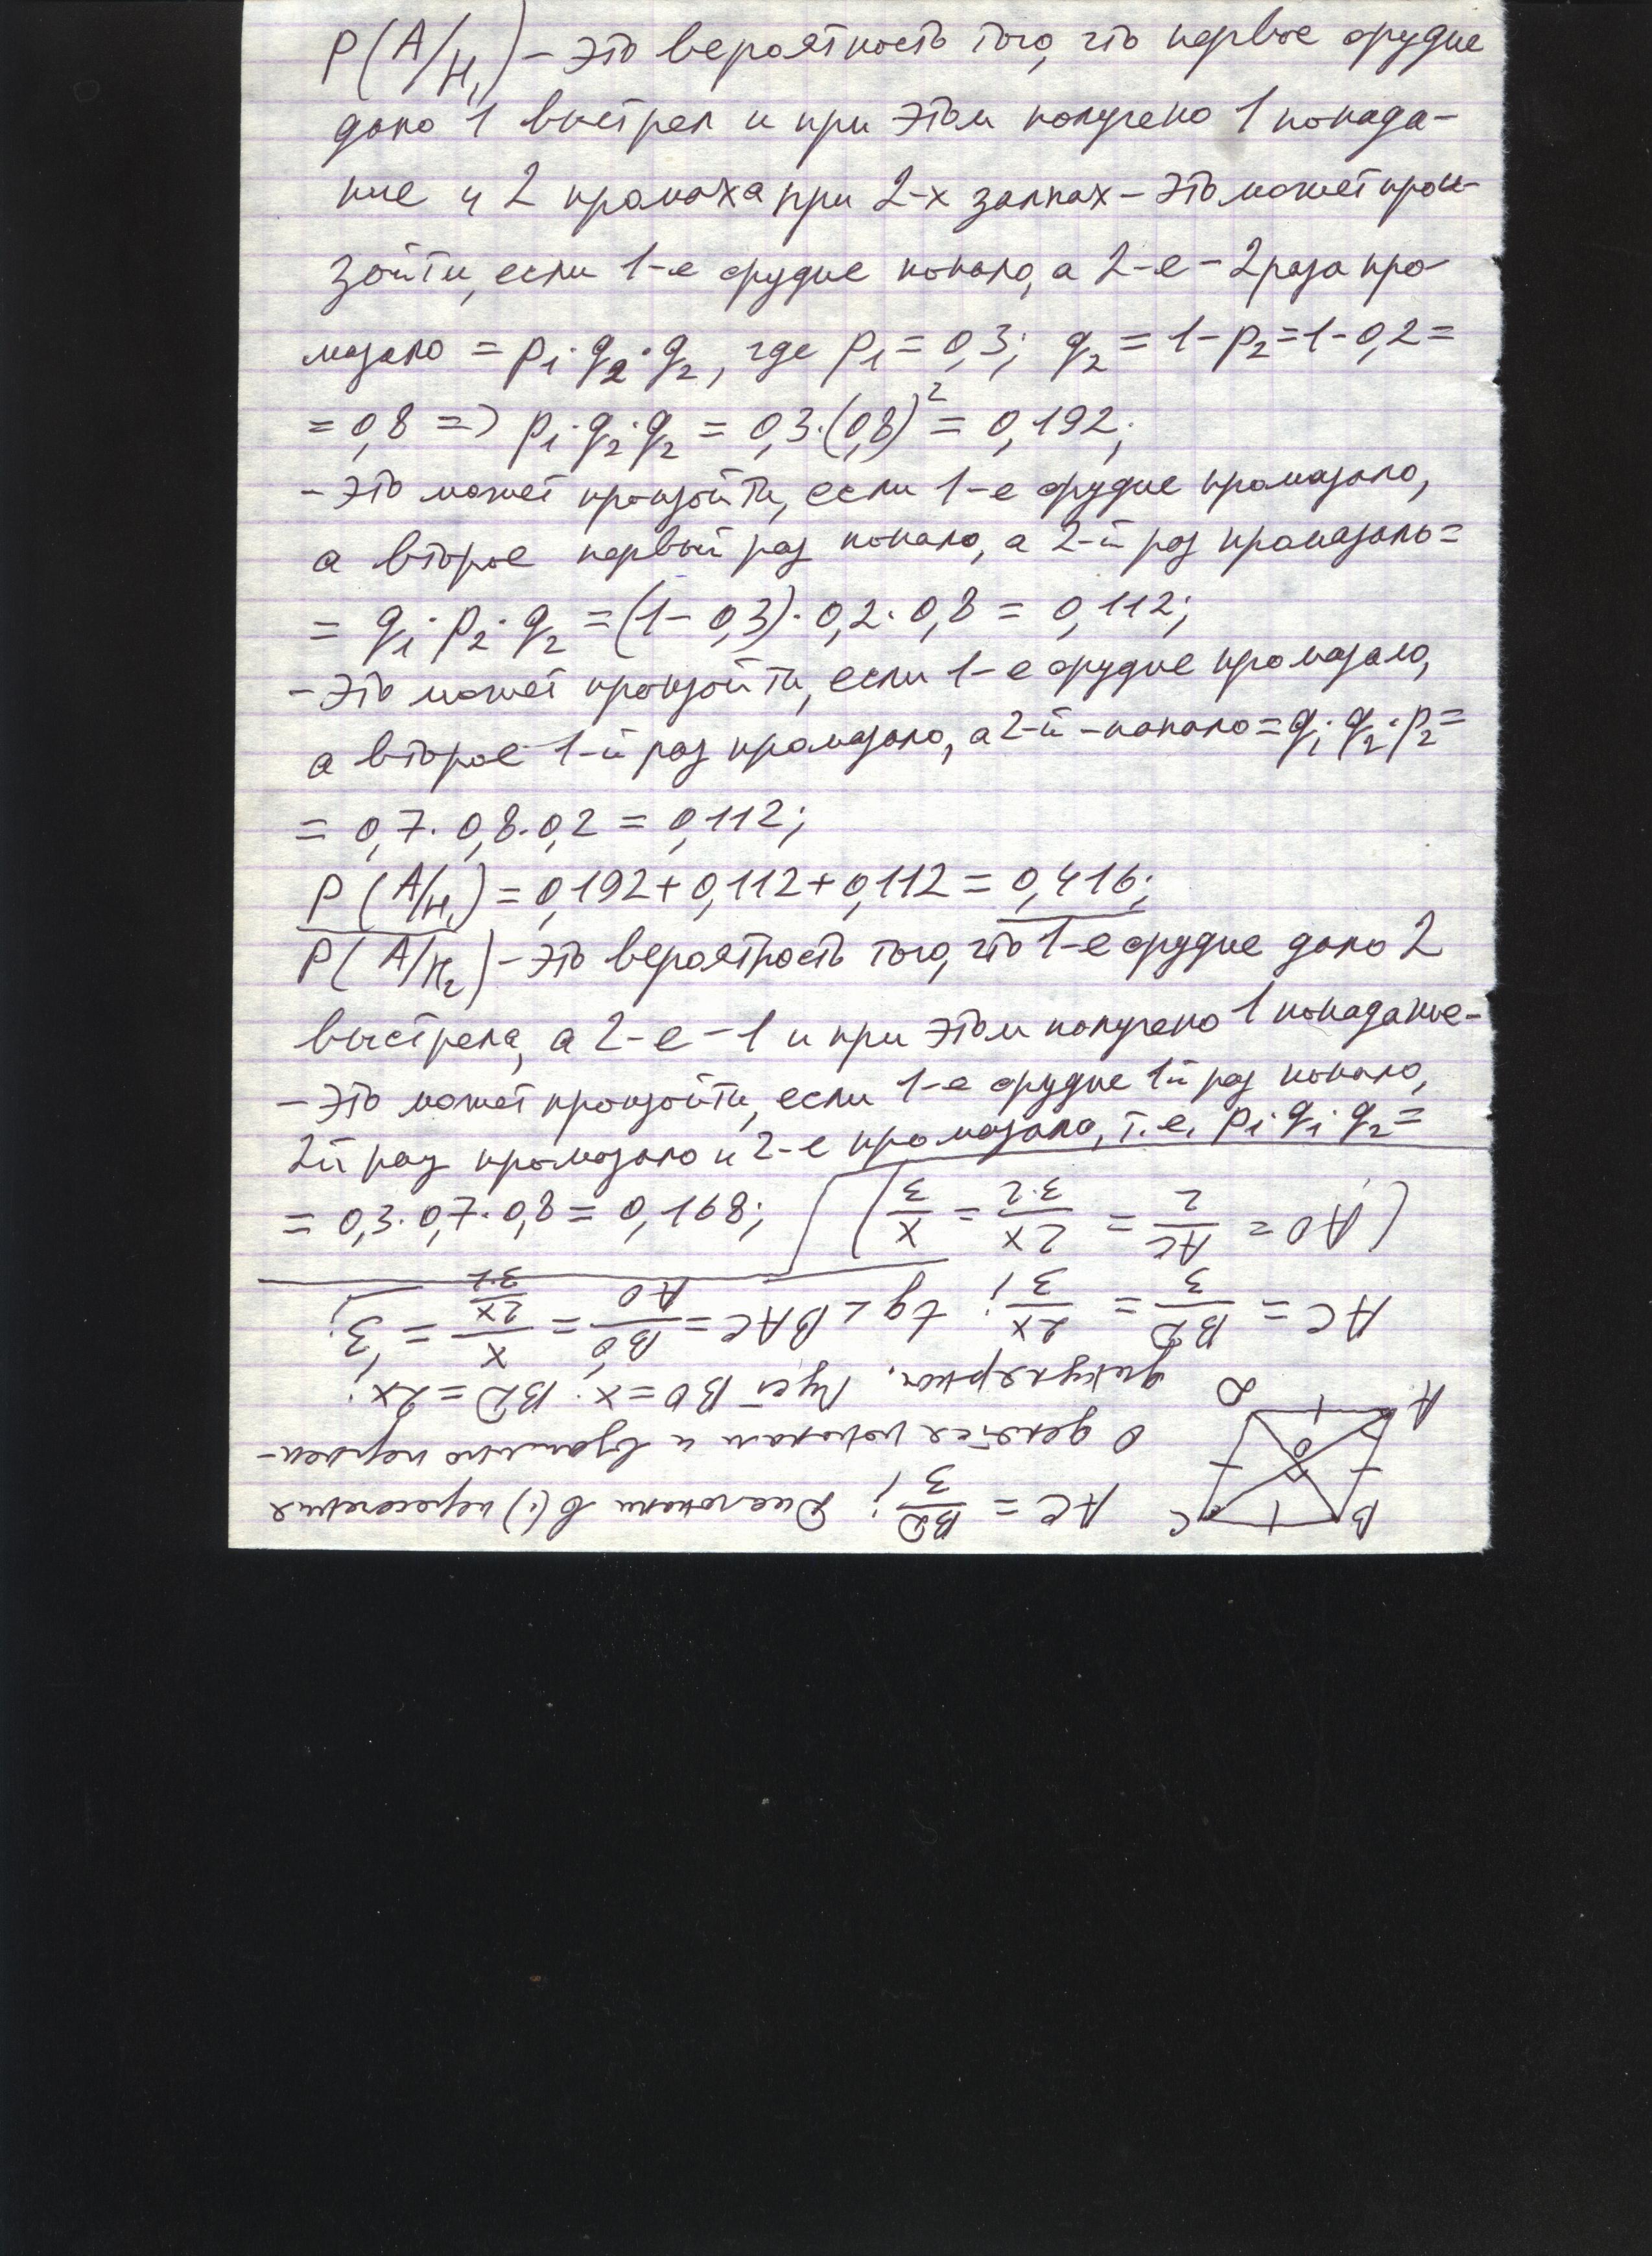 P(A/H₁) – это вероятность того, что первое орудие
дало 1 выстрел и при этом получено 1 попада-
ние и 2 промаха при 2-х залпах – это может прои-
зойти, если 1-е орудие попало, а 2-е – 2 раза про-
мазало = p₁·q₂·q₂, где p₁ = 0,3; q₂ = 1-p₂ = 1-0,2 =
= 0,8 => p₁·q₂·q₂ = 0,3·(0,8)² = 0,192;
– это может произойти, если 1-е орудие промазало,
а второе первый раз попало, а 2-й раз промазало =
= q₁·p₂·q₂ = (1-0,3)·0,2·0,8 = 0,112;
– это может произойти, если 1-е орудие промазало,
а второе 1-й раз промазало, а 2-й – попало = q₁·q₂·p₂ =
= 0,7·0,8·0,2 = 0,112;
P(A/H₁) = 0,192+0,112+0,112 = 0,416;
P(A/H₂) – это вероятность того, что 1-е орудие дало 2
выстрела, а 2-е – 1 и при этом получено 1 попадание –
– это может произойти, если 1-е орудие 1й раз попало,
2й раз промазало и 2-е промазало, т.е. p₁·q₁·q₂ =
= 0,3·0,7·0,8 = 0,168;
B C AC = BD/3; Диагонали в (·) пересечения
O делятся пополам и взаимно перпен-
A D дикулярны. Пусть BO = x. BD = 2x;
AC = BD/3 = 2x/3; tg∠BAC = BO/AO = x/(2x/3·2) = 3;
(AO = AC/2 = 2x/3·2 = x/3)